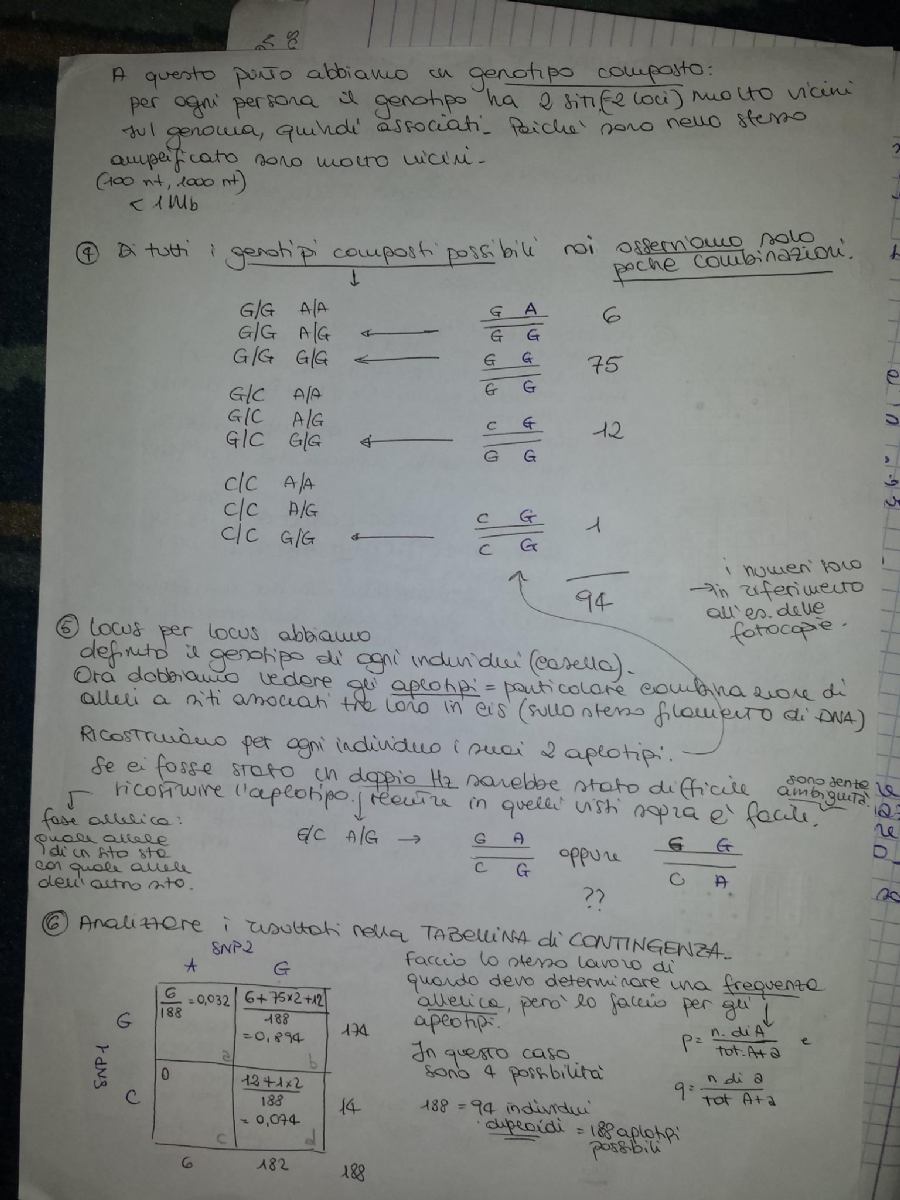 A questo punto abbiamo un genotipo composto:
per ogni persona il genotipo ha 2 siti (=2 loci) molto vicini
sul genoma, quindi associati. Poiché sono nello stesso
amplificato sono molto vicini.
(100 nt, 1000 nt)
< 1 Mb
④ Di tutti i genotipi composti possibili noi osserviamo solo
poche combinazioni.
G/G A/A
G/G A/G ← G A / G G 6
G/G G/G ← G G / G G 75
G/C A/A
G/C A/G
G/C G/G ← C G / G G 12
C/C A/A
C/C A/G
C/C G/G ← C G / C G 1
94
i numeri sono
→ in riferimento
all'es. delle
fotocopie.
⑤ Locus per locus abbiamo
definito il genotipo di ogni individui (casella).
Ora dobbiamo vedere gli aplotipi = particolare combinazione di
alleli a siti associati tra loro in cis (sullo stesso filamento di DNA)
Ricostruiamo per ogni individuo i suoi 2 aplotipi.
Se ci fosse stato un doppio Hz sarebbe stato difficile
ricostruire l'aplotipo, mentre in quelli visti sopra è facile.
sono senza
ambiguità
fase allelica:
quale allele
di un sito sta
con quale allele
dell'altro sito.
G/C A/G → G A / C G oppure G G / C A
??
⑥ Analizzare i risultati nella TABELLINA di CONTINGENZA.
SNP2
A G
SNP1
G 6/188 = 0,032 a 6+75x2+12/188 = 0,894 b 174
C 0 c 12+1x2/188 = 0,074 d 14
6 182 188
Faccio lo stesso lavoro di
quando devo determinare una frequenza
allelica, però lo faccio per gli
aplotipi.
p = n. di A / tot. A+a e
q = n di a / tot A+a
In questo caso
sono 4 possibilità
188 = 94 individui
diploidi = 188 aplotipi
possibili